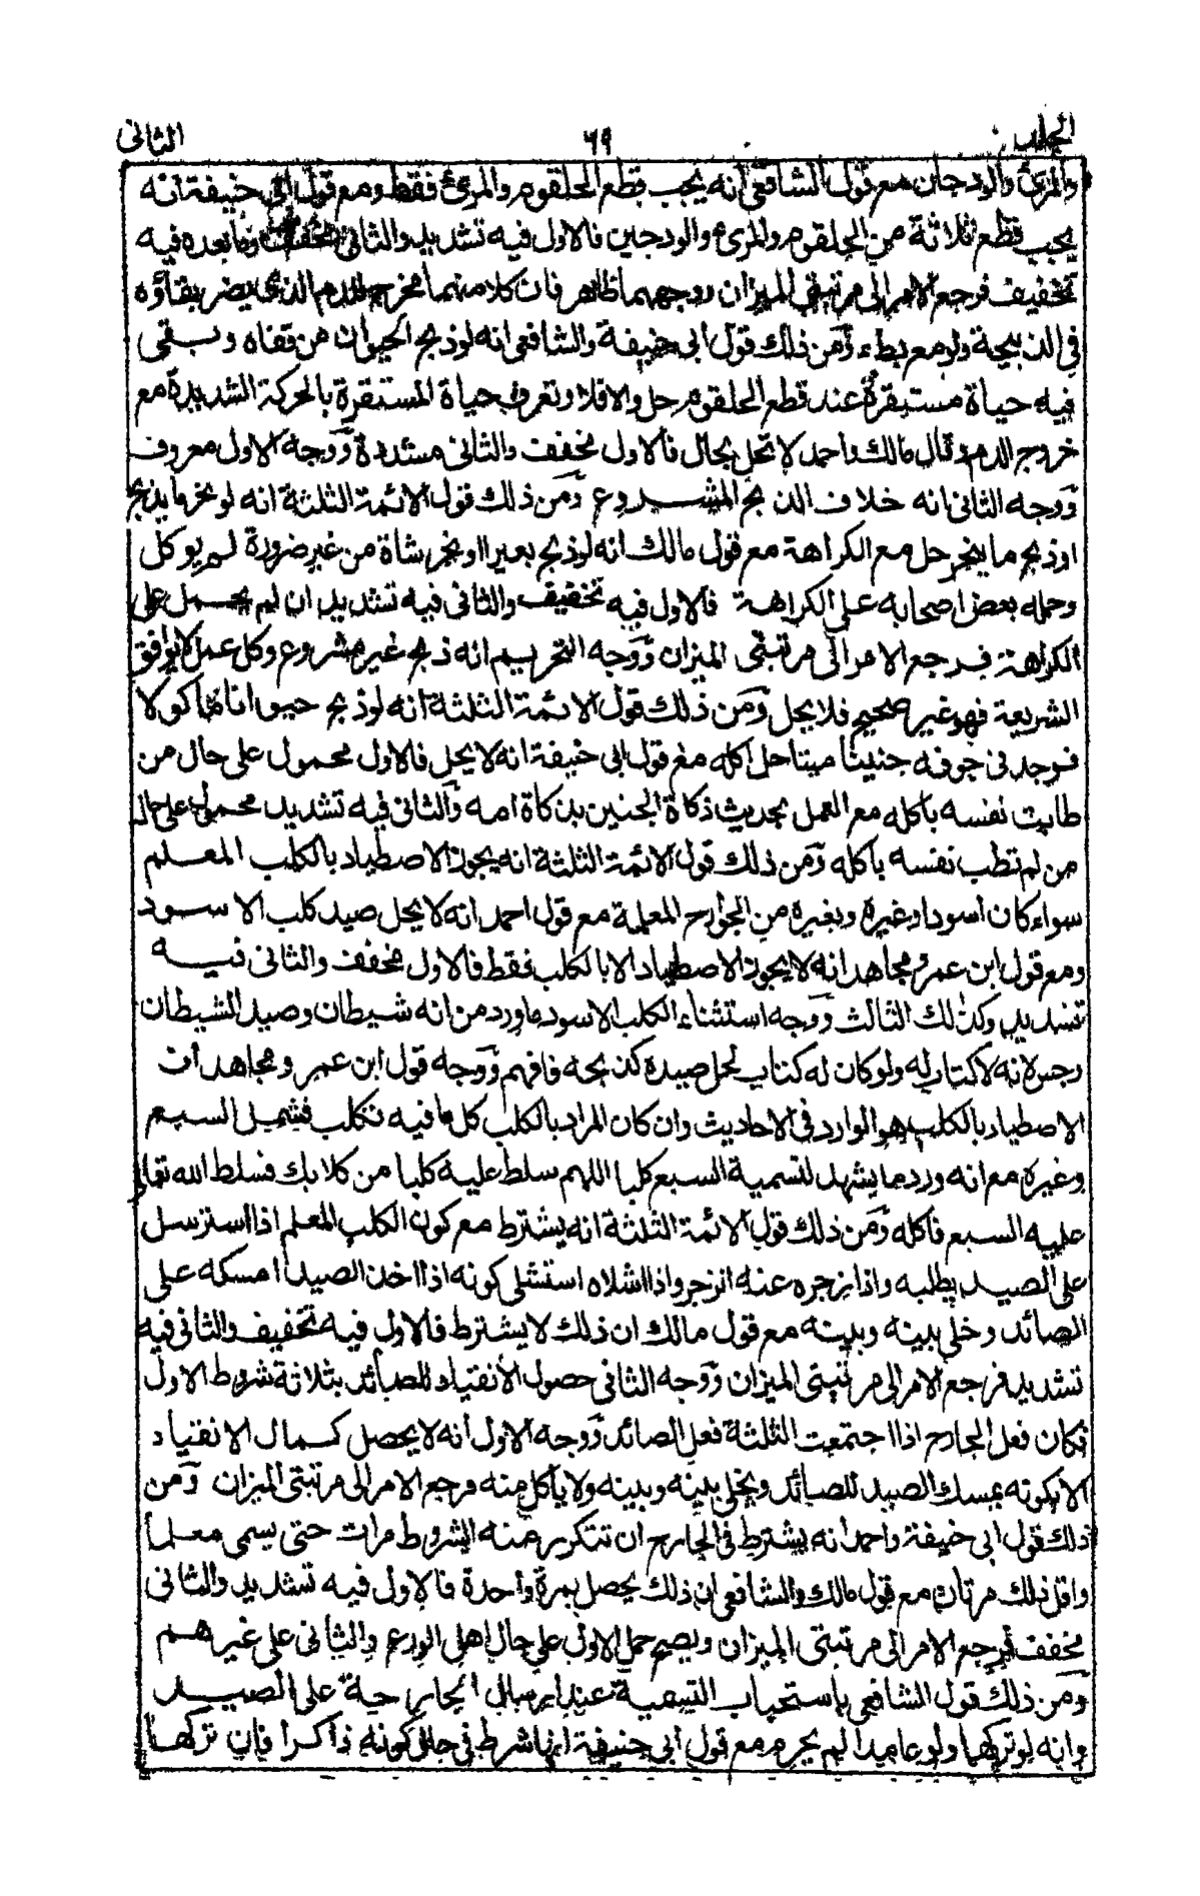 الجلد
٦٩
الثانى
والمرئ والودجان مع قول الشافعى انه يجب قطع الحلقوم والمرئ فقط ومع قول ابى حنيفة انه
يجب قطع ثلاثة من الحلقوم والمرئ والودجين فالاول فيه تشديد والثانى مخفف وما بعده فيه
تخفيف فرجع الامر الى مرتبتى الميزان ووجههما ظاهر فان كلا منهما مخرج للدم الذى يضر بقاؤه
فى الذبيحة ولو مع بطء ومن ذلك قول ابى حنيفة والشافعى انه لو ذبح الحيوان من قفاه وبقى
فيه حياة مستقرة عند قطع الحلقوم حل والا فلا وتعرف حياة المستقرة بالحركة الشديدة مع
خروج الدم وقال مالك واحمد لا تحل بحال فالاول مخفف والثانى مشدد ووجه الاول معروف
ووجه الثانى انه خلاف الذبح المشروع ومن ذلك قول الائمة الثلثة انه لو نحر ما يذبح
او ذبح ما ينحر حل مع الكراهة مع قول مالك انه لو ذبح بعيرا او نحر شاة من غير ضرورة لم يوكل
وحمله بعض اصحابه على الكراهة فالاول فيه تخفيف والثانى فيه تشديد ان لم يحمل على
الكراهة فرجع الامر الى مرتبتى الميزان ووجه التحريم انه ذبح غير مشروع وكل عمل لا يوافق
الشريعة فهو غير صحيح فلا يحل ومن ذلك قول الائمة الثلثة انه لو ذبح حيوانا ماكولا
فوجد فى جوفه جنينا ميتا حل اكله مع قول ابى حنيفة انه لا يحل فالاول محمول على حال من
طابت نفسه باكله مع العمل بحديث ذكاة الجنين بذكاة امه والثانى فيه تشديد محمول على حال
من لم تطب نفسه باكله ومن ذلك قول الائمة الثلثة انه يجوز الاصطياد بالكلب المعلم
سواء كان اسود او غيره وبغيره من الجوارح المعلمة مع قول احمد انه لا يحل صيد كلب الاسود
ومع قول ابن عمر ومجاهد انه لا يجوز الاصطياد الا بالكلب فقط فالاول مخفف والثانى فيه
تشديد وكذلك الثالث ووجه استثناء الكلب الاسود ما ورد من انه شيطان وصيد الشيطان
رجس لانه لا كتاب له ولو كان له كتاب لحل صيده كذبحه فافهم ووجه قول ابن عمر ومجاهد ان
الاصطياد بالكلب هو الوارد فى الاحاديث وان كان المراد بالكلب كل ما فيه تكلب فشمل السبع
وغيره مع انه ورد ما يشهد لتسمية السبع كلبا اللهم سلط عليه كلبا من كلابك فسلط الله تعالى
عليه السبع فاكله ومن ذلك قول الائمة الثلثة انه يشترط مع كون الكلب المعلم اذا استرسل
على الصيد يطلبه واذا زجره عنه انزجر واذا اشلاه استشلى كونه اذا اخذ الصيد امسكه على
الصائد وخلى بينه وبينه مع قول مالك ان ذلك لا يشترط فالاول فيه تخفيف والثانى فيه
تشديد فرجع الامر الى مرتبتى الميزان ووجه الثانى حصول الانقياد للصائد بثلاثة شروط الاول
فكان فعل الجارح اذا اجتمعت الثلثة فعل الصائد ووجه الاول انه لا يحصل كمال الانقياد
الا بكونه يمسك الصيد للصائد ويخلى بينه وبينه ولا ياكل منه فرجع الامر الى مرتبتى الميزان ومن
ذلك قول ابى حنيفة واحمد انه يشترط فى الجارح ان تتكرر منه الشروط مرات حتى يسمى معلما
واقل ذلك مرتان مع قول مالك والشافعى ان ذلك يحصل بمرة واحدة فالاول فيه تشديد والثانى
مخفف فرجع الامر الى مرتبتى الميزان ويصح حمل الاول على حال اهل الورع والثانى على غيرهم
ومن ذلك قول الشافعى باستحباب التسمية عند ارسال الجارحة على الصيد
وانه لو تركها ولو عامدا لم يحرم مع قول ابى حنيفة انها شرط فى حال كونه ذاكرا فان تركها